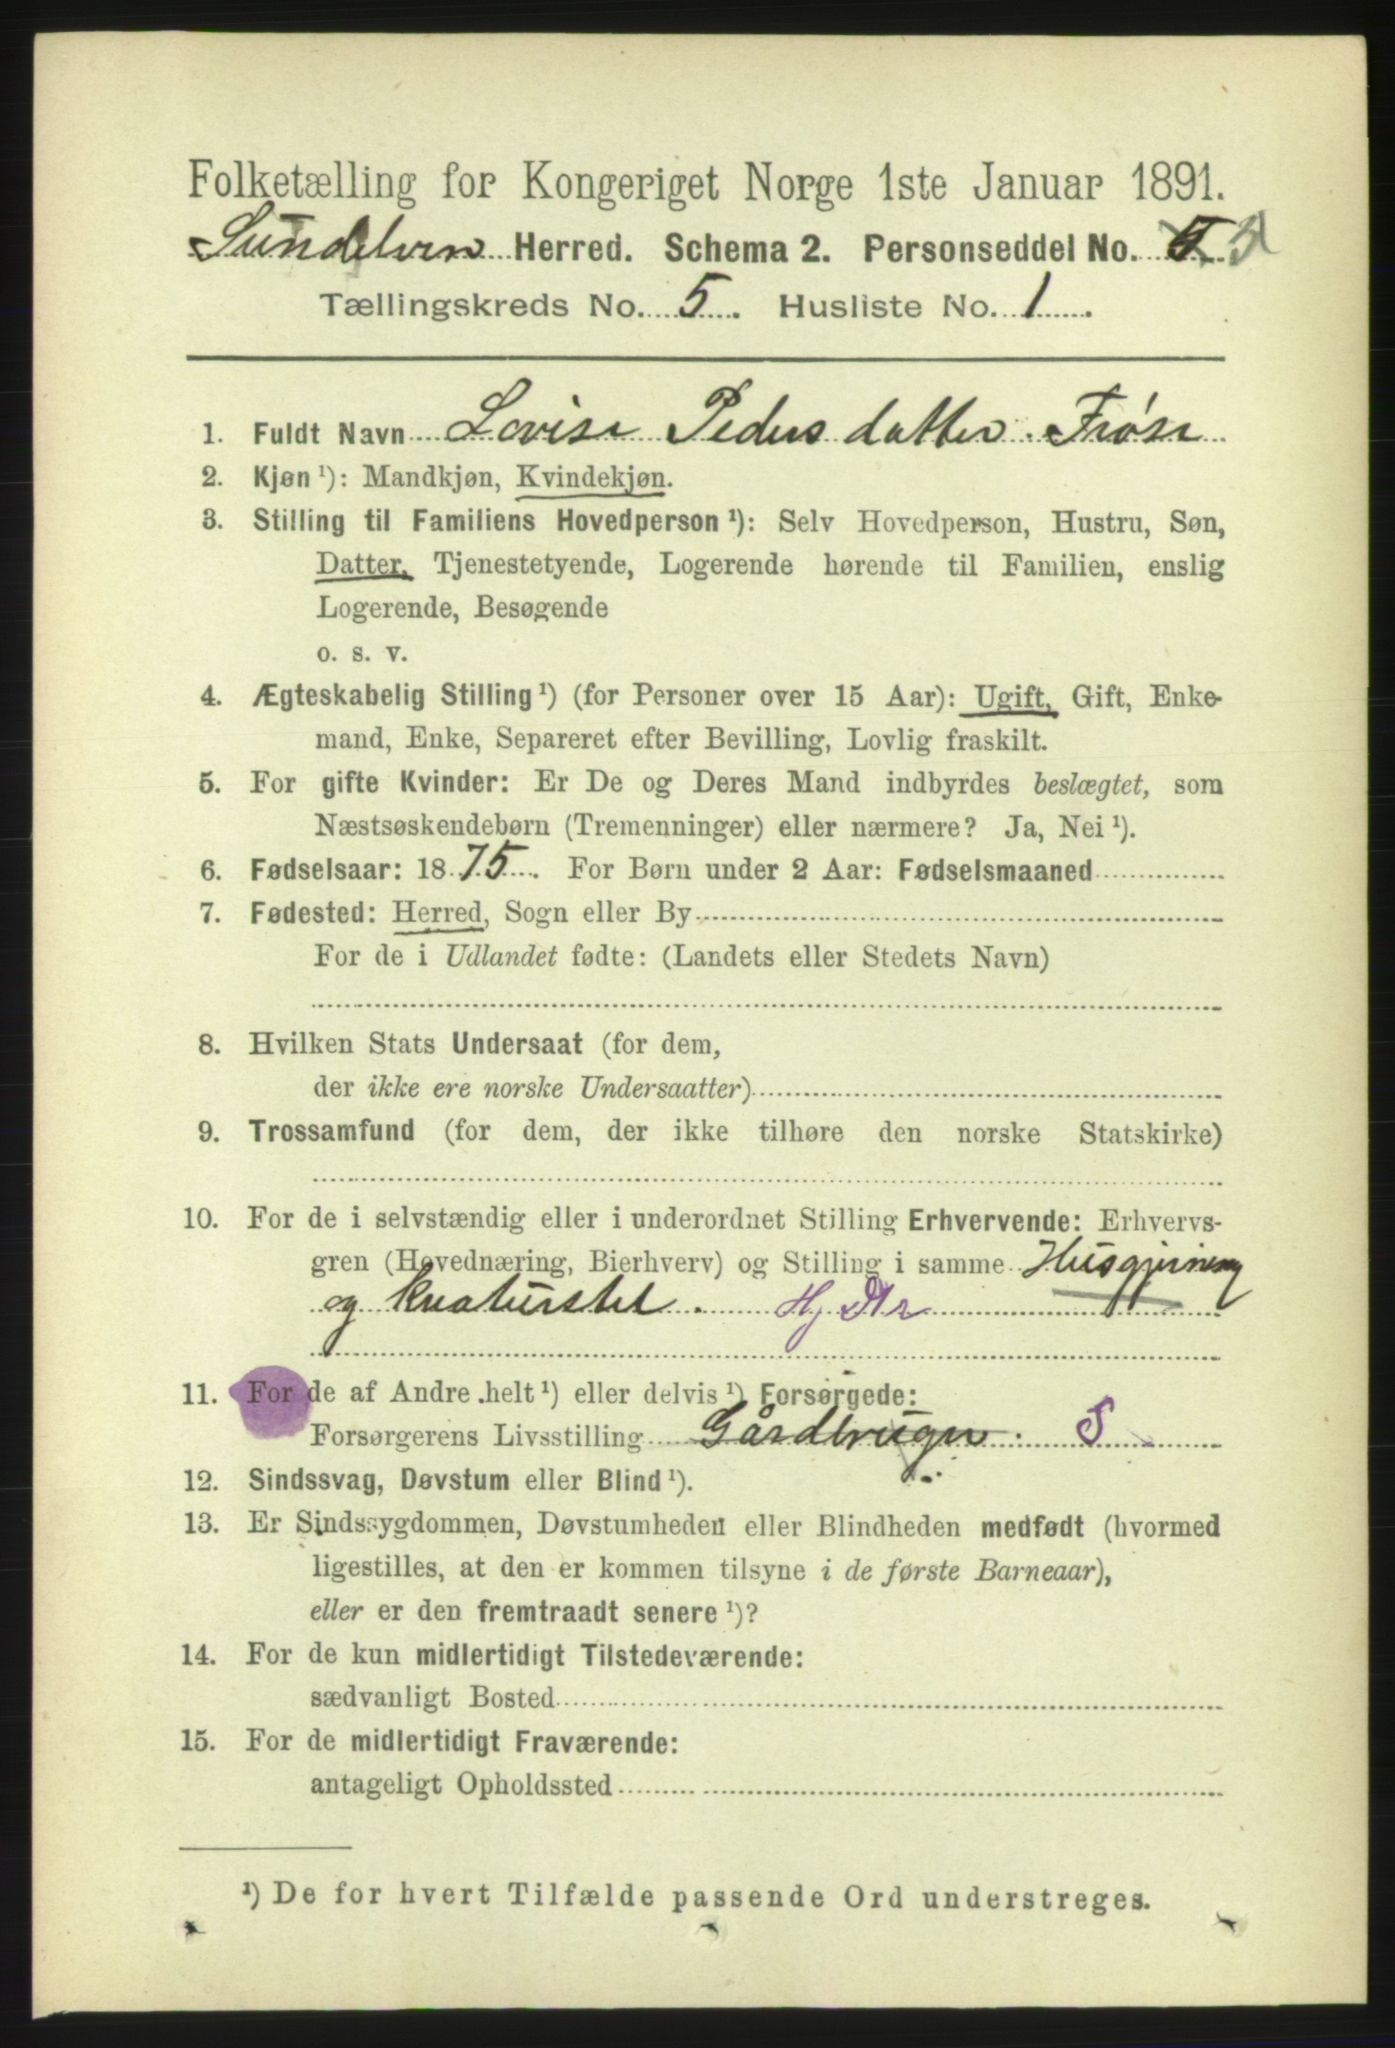 Folketælling for Kongeriget Norge 1ste Januar 1891.
Sundelven Herred. Schema 2. Personseddel No. 5
Tællingskreds No. 5. Husliste No. 1
1. Fuldt Navn Lovise Pedersdatter Frøse
2. Kjøn ¹): Mandkjøn, Kvindekjøn.
3. Stilling til Familiens Hovedperson ¹): Selv Hovedperson, Hustru, Søn,
Datter, Tjenestetyende, Logerende hørende til Familien, enslig
Logerende, Besøgende
o. s. v.
4. Ægteskabelig Stilling ¹) (for Personer over 15 Aar): Ugift, Gift, Enke-
mand, Enke, Separeret efter Bevilling, Lovlig fraskilt.
5. For gifte Kvinder: Er De og Deres Mand indbyrdes beslægtet, som
Næstsøskendebørn (Tremenninger) eller nærmere? Ja, Nei ¹).
6. Fødselsaar: 1875. For Børn under 2 Aar: Fødselsmaaned
7. Fødested: Herred, Sogn eller By
For de i Udlandet fødte: (Landets eller Stedets Navn)
8. Hvilken Stats Undersaat (for dem,
der ikke ere norske Undersaatter)
9. Trossamfund (for dem, der ikke tilhøre den norske Statskirke)
10. For de i selvstændig eller i underordnet Stilling Erhvervende: Erhvervs-
gren (Hovednæring, Bierhverv) og Stilling i samme Husgjerning
og kreaturstel. Hj Dtr
11. For de af Andre helt ¹) eller delvis ¹) Forsørgede:
Forsørgerens Livsstilling Gårdbruger. S
12. Sindssvag, Døvstum eller Blind ¹).
13. Er Sindssygdommen, Døvstumheden eller Blindheden medfødt (hvormed
ligestilles, at den er kommen tilsyne i de første Barneaar),
eller er den fremtraadt senere ¹)?
14. For de kun midlertidigt Tilstedeværende:
sædvanligt Bosted
15. For de midlertidigt Fraværende:
antageligt Opholdssted
¹) De for hvert Tilfælde passende Ord understreges.